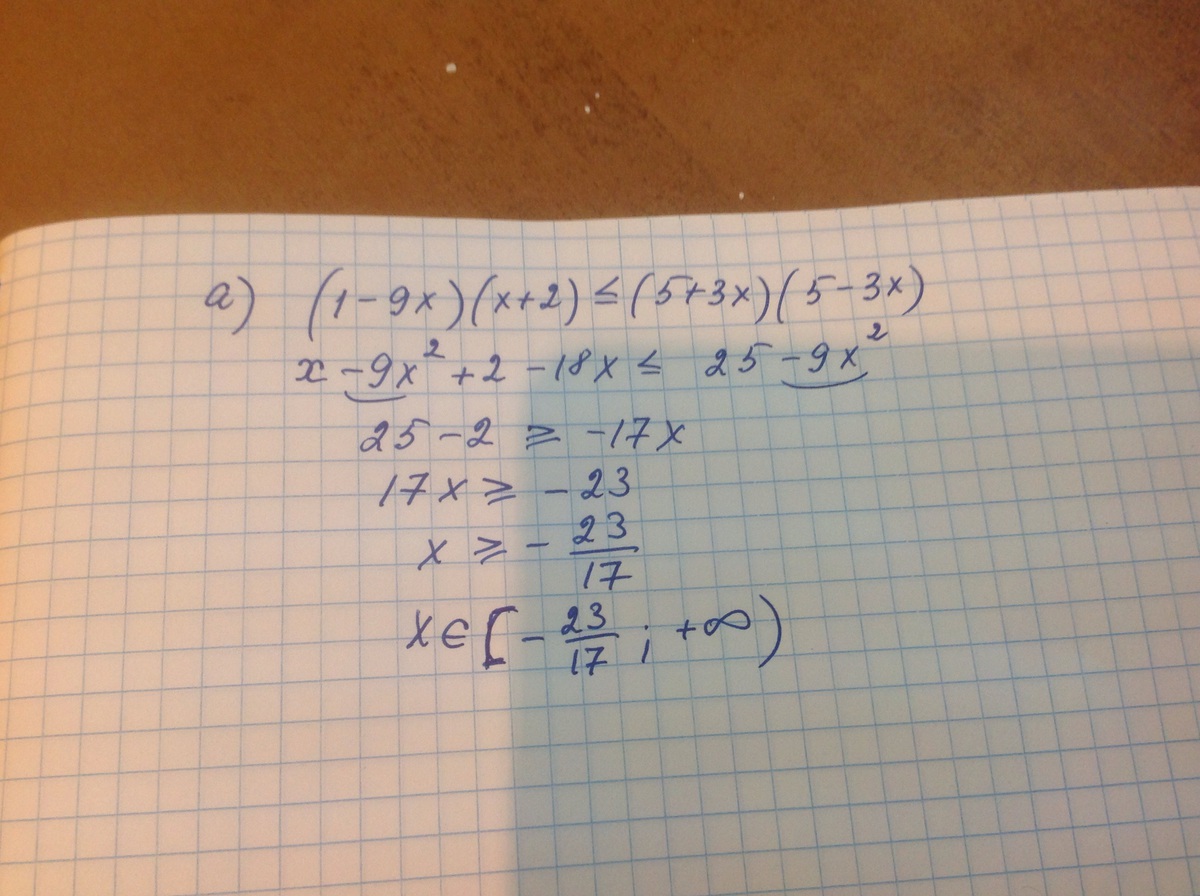 a) (1-9x)(x+2) ≤ (5+3x)(5-3x)
x - 9x² + 2 - 18x ≤ 25 - 9x²
25 - 2 ≥ -17x
17x ≥ -23
x ≥ - 23/17
x ∈ [- 23/17 ; +∞)